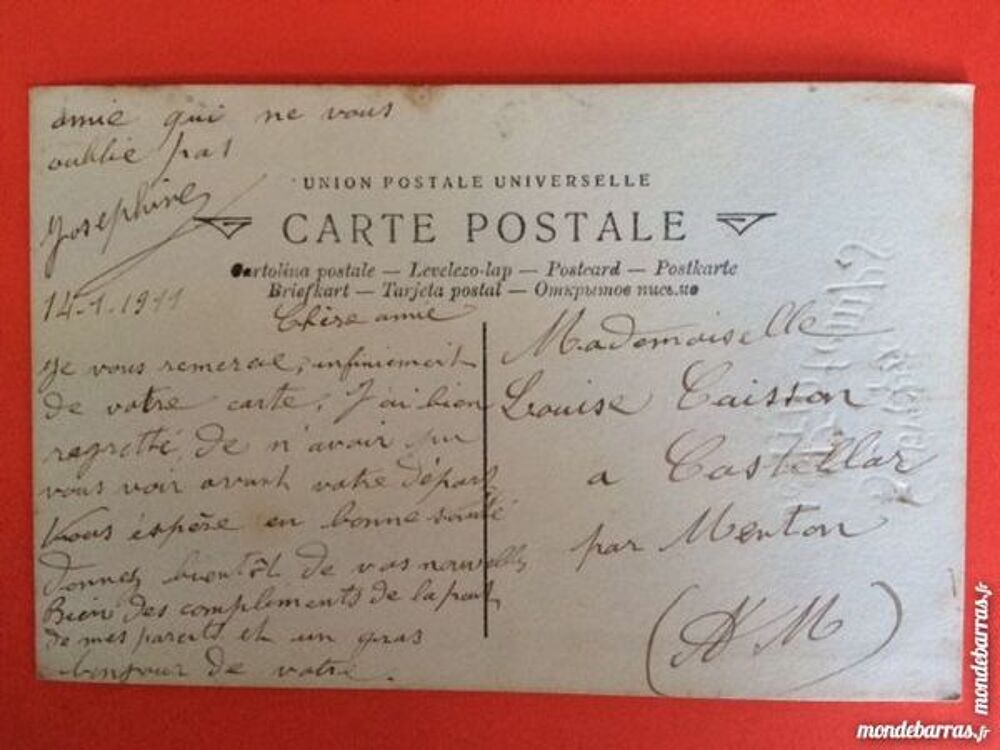 amie qui ne vous
oublie pas
Josephine
14-1-1911
UNION POSTALE UNIVERSELLE
CARTE POSTALE
Cartolina postale — Levelezo-lap — Postcard — Postkarte
Briefkart — Tarjeta postal — Открытое письмо
Chère amie
Je vous remercie, infiniement
de votre carte, J'ai bien
regretté de n'avoir pu
vous voir avant votre départ
Vous éspère en bonne santé
Donnez bientôt de vos nouvelles
Bien des compliments de la part
de mes parents et un gros
bonjour de votre.
Mademoiselle
Louise Caisson
a Castellar
par Menton
(A M)
mondebarras.fr
mondebarras.fr